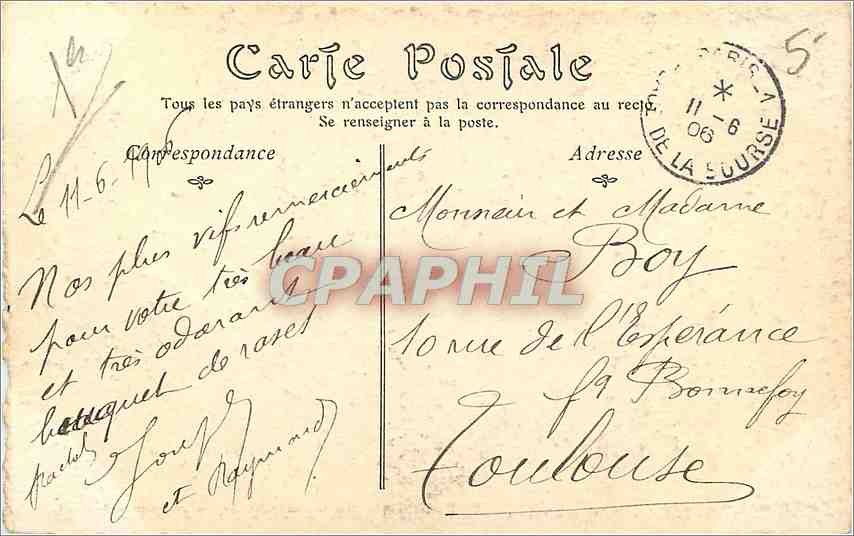 Carte Postale
Tous les pays étrangers n'acceptent pas la correspondance au recto.
Se renseigner à la poste.
Correspondance
Adresse
PARIS-1
DE LA BOURSE
*
11-6
06
5
Le 11-6-1906
Nos plus vifs remerciements
pour votre très beau
et très odorant
bouquet de roses
et Raymond
Monsieur et Madame
Boy
10 rue de l'Espérance
fg Bonnefoy
Toulouse
CPAPHIL